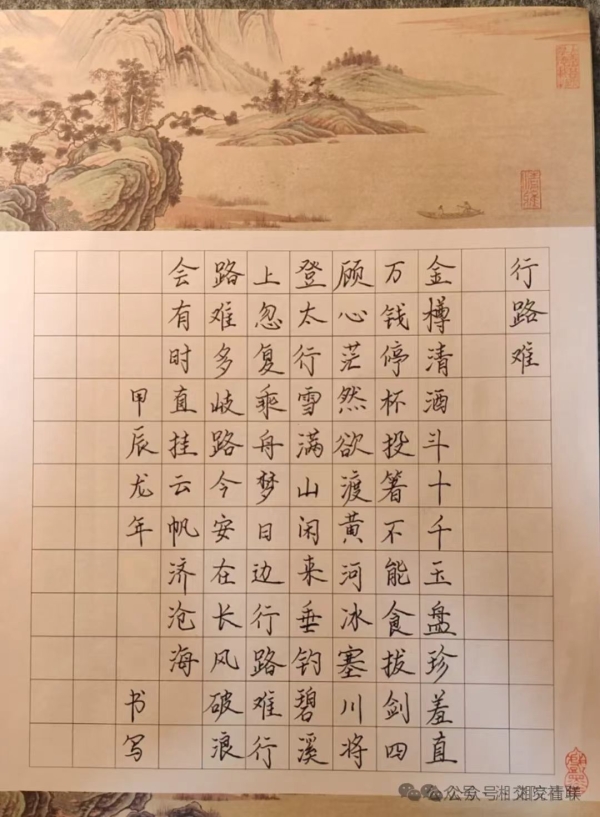 行路难
金樽清酒斗十千玉盘珍羞直
万钱停杯投箸不能食拔剑四
顾心茫然欲渡黄河冰塞川将
登太行雪满山闲来垂钓碧溪
上忽复乘舟梦日边行路难行
路难多岐路今安在长风破浪
会有时直挂云帆济沧海
甲辰龙年 书写
公众号·湘交院社联